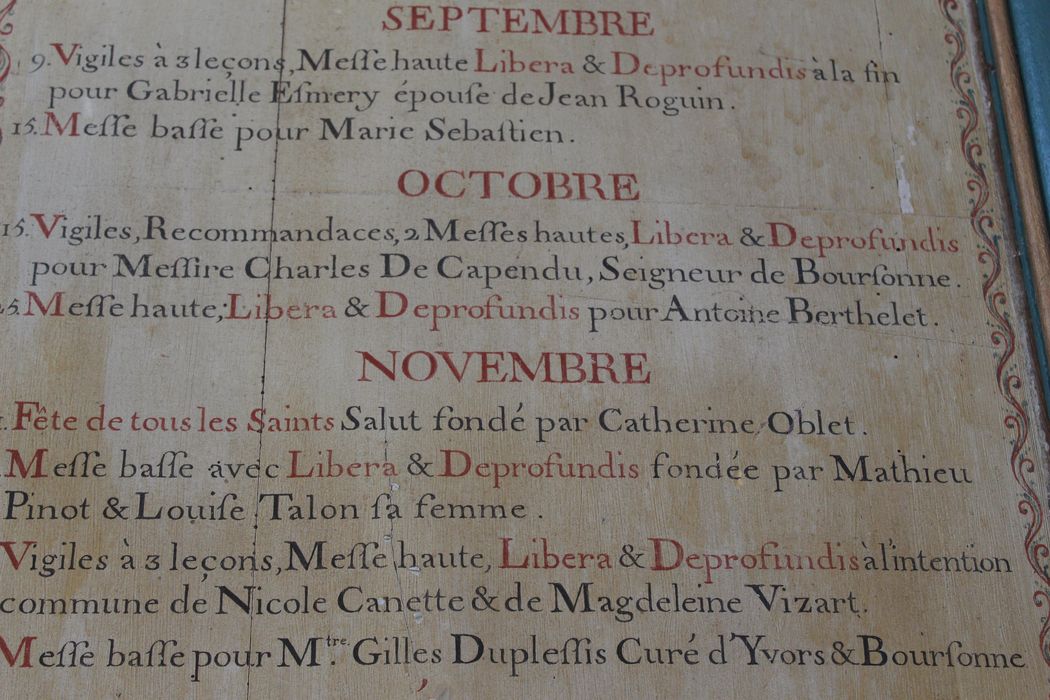 SEPTEMBRE
9. Vigiles à 3 leçons, Meſſe haute Libera & Deprofundis à la fin
pour Gabrielle Eſmery épouſe de Jean Roguin.
15. Meſſe baſſe pour Marie Sebaſtien.
OCTOBRE
15. Vigiles, Recommandaces, 2 Meſſes hautes, Libera & Deprofundis
pour Meſſire Charles De Capendu, Seigneur de Bourſonne.
25. Meſſe haute; Libera & Deprofundis pour Antoine Berthelet.
NOVEMBRE
1. Fête de tous les Saints Salut fondé par Catherine Oblet.
Meſſe baſſe avec Libera & Deprofundis fondée par Mathieu
Pinot & Louiſe Talon ſa femme.
Vigiles à 3 leçons, Meſſe haute, Libera & Deprofundis à l'intention
commune de Nicole Canette & de Magdeleine Vizart.
Meſſe baſſe pour M.tre Gilles Dupleſſis Curé d'Yvors & Bourſonne